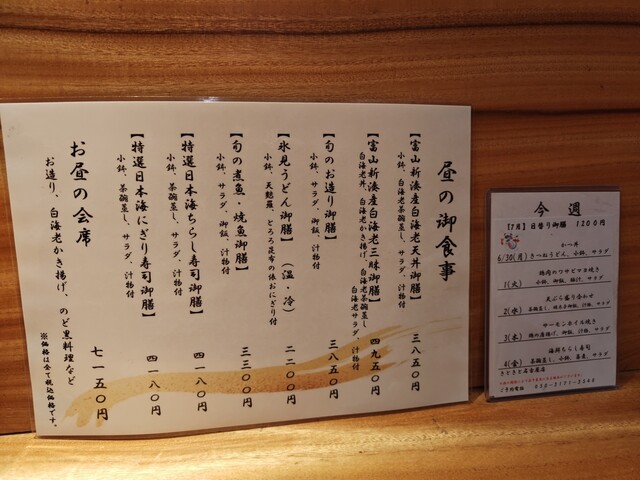 昼の御食事
【富山新湊産白海老天丼御膳】 三八五〇円
小鉢、茶碗蒸し、サラダ、汁物付
【富山新湊産白海老三昧御膳】 四九五〇円
白海老丼、白海老かき揚げ、白海老茶碗蒸し
白海老サラダ、汁物付
【旬のお造り御膳】 三八五〇円
小鉢、サラダ、御飯、汁物付
【氷見うどん御膳】(温・冷) 二二〇〇円
小鉢、天麩羅、とろろ昆布の俵おにぎり付
【旬の煮魚・焼魚御膳】 三三〇〇円
小鉢、サラダ、御飯、汁物付
【特選日本海ちらし寿司御膳】 四一八〇円
小鉢、茶碗蒸し、サラダ、汁物付
【特選日本海にぎり寿司御膳】 四一八〇円
小鉢、茶碗蒸し、サラダ、汁物付
お昼の会席 七一五〇円
お造り、白海老かき揚げ、のど黒料理など
※価格は全て税込価格です。
今週
【7月】日替り御膳 1200円
かつ丼
6/30(月) きつねうどん、小鉢、サラダ
鶏肉のワサビマヨ焼き
1(火) 小鉢、御飯、豚汁、サラダ
天ぷら盛り合わせ
2(水) 茶碗蒸し、明太子御飯、汁物、サラダ
サーモンホイル焼き
3(木) 鶏の唐揚げ、御飯、汁物、サラダ
海鮮ちらし寿司
4(金) 茶碗蒸し、小鉢、蕎麦、サラダ
きときと名古屋店
ご予約電話